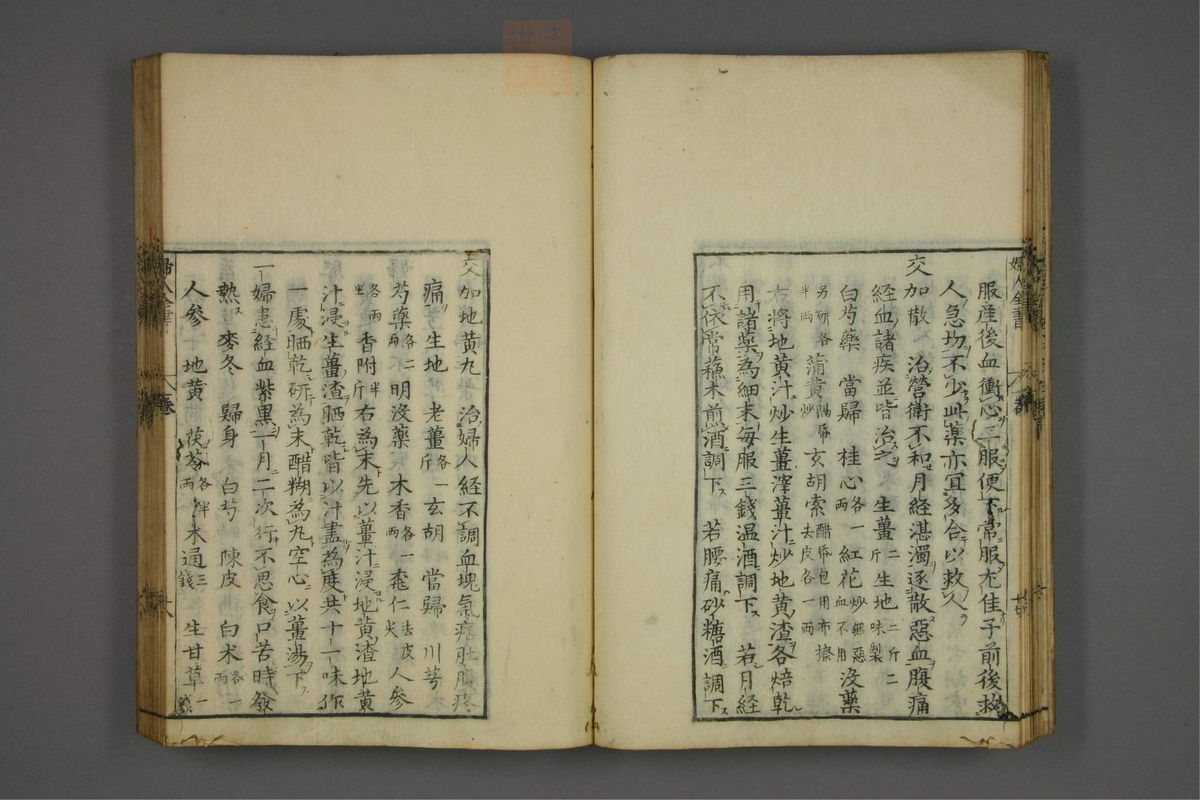 服産後血衝心二服便下常服尤佳子前後救
人急切不少此藥亦冝多合以救人
交加散 治營衛不和月経湛濁逐散惡血腹痛
経血諸疾並皆治之 生薑二斤 生地二斤二味製
白芍藥 當歸 桂心各一両 紅花炒無惡血不用 没藥
另研各半両 蒲黄隔帋炒 玄胡索醋帋包用布擦去皮各一両
右將地黄汁炒生薑滓薑汁炒地黄渣各焙乾
用諸藥為細末每服三錢温酒調下 若月経
不依常蘓木煎酒調下 若腰痛砂糖酒調下
婦人全書 八卷
交加地黄丸 治婦人経不調血塊氣痞肚腹疼
痛 生地 老薑各一斤 玄胡 當歸 川芎
芍藥各二両 明没藥 木香各一両 桃仁去皮尖 人參
各両半 香附半斤 右為末先以薑汁浸地黄渣地黄
汁浸生薑渣晒乾皆以汁盡為度共十一味作
一處晒乾研為末醋糊為丸空心以薑湯下
一婦患経血紫黑一月二次行不思食口苦時發
熱 麥冬 歸身 白芍 陳皮 白术各一両
人參 地黄 茯苓各半両 木通三錢 生甘草一錢
婦人全書 八卷